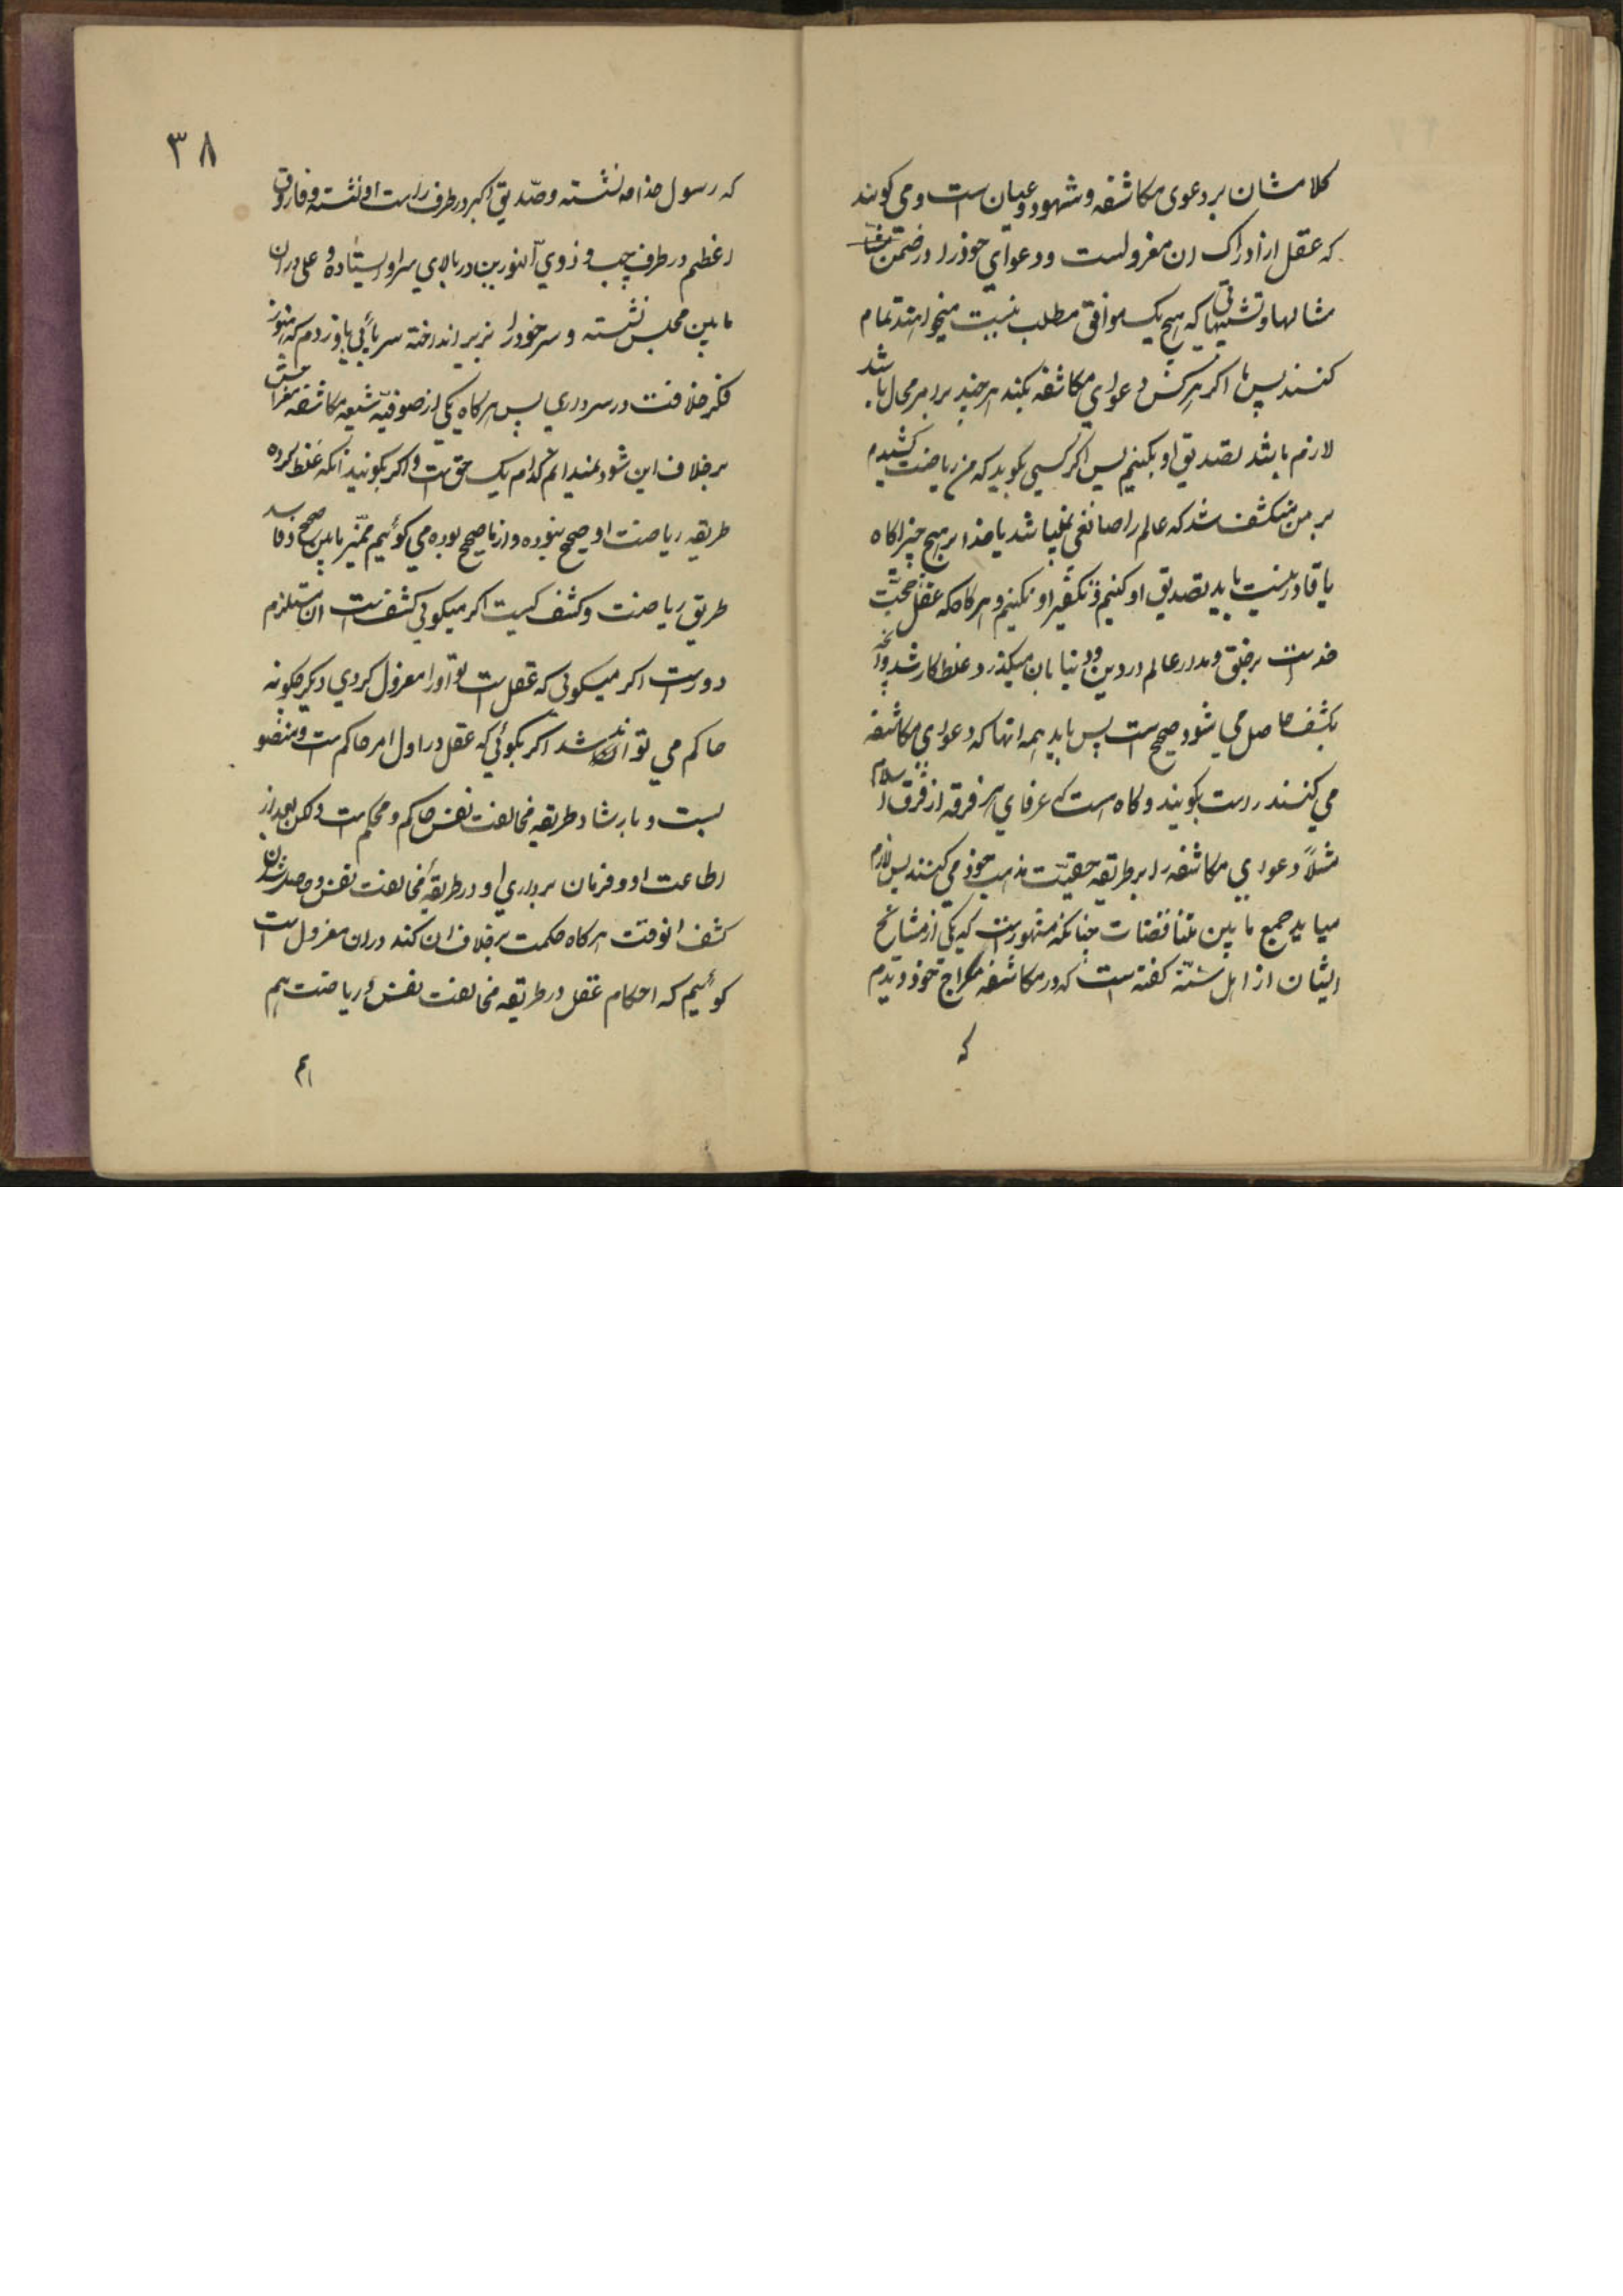 کلامشان بر دعوی مکاشفه و شهود و عیان است و می کویند
که عقل از ادراک ان معزولست و دعوای خوذرا در ضمن
مثالها و تشبیهاتی که هیچ یک موافق مطلب نیست میخواهند تمام
کنند پس بنا اکر هرکس دعوای مکاشفه بکند هر چند برابر محال باشد
لازم باشد تصدیق او بکنیم پس اکر کسی بکوید که من ریاضت کشیدم
بر من منکشف شد که عالم را صانعی نمیباشد یا خدا بر هیچ چیز اکاه
یا قادر نیست باید تصدیق او کنیم و تکفیر او نکنیم و هرکاه که عقل حجّت
خداست بر خلق و مدار عالم در دین و دنیا بان میکذرد غلط کار شد و انچه
بکشف حاصل می شود صحیح است پس باید همه انها که دعوای مکاشفه
می کنند راست بکویند و کاه است که عرفای هر فرقه از فرق اسلام
مثلاً دعوای مکاشفه را بر طریقه حقیّت مذهب خوذ می کنند پس لازم
میاید جمع ما بین متناقضات چنانکه مشهور است که یکی از مشایخ
ایشان از اهل سنّت کفته است که در مکاشفه معراج خوذ دیدم
که
۳۸
که رسول خدا نشسته و صدّیق اکبر در طرف راست او نشسته و فاروق
اعظم در طرف چپ و ذوی النورین در بالای سر او ایستاده و علی در ان
مابین مجلس نشسته و سر خودرا بزیر انداخته سر پائی باو زدم که هنوز
فکر خلافت در سر داری پس هرکاه یکی از صوفیّه شیعه مکاشفه معراجش
بر خلاف این شود نمیدانم کدام یک حق است و اکر بکویند آنکه غلط کرده
طریقه ریاضت او صحیح نبوده و از ما صحیح بوده می کوئیم ممیّز مابین صحیح و فاسد
طریق ریاضت و کشف کیست اکر میکوئی کشف است ان مستلزم
دور است اکر میکوئی که عقل است تو او را معزول کردی دیکر چکونه
حاکم می تواند شد اکر بکوئی که عقل در اول امر حاکم است و منصوب
بست و بارشاد طریقه مخالفت نفس حاکم و محکم است ولکن بعد از
اطاعت او و فرمان برداری او در طریقهٔ مخالفت نفس و حاصل شدن
کشف انوقت هرکاه حکمت بر خلاف ان کند در ان معزول است
کوئیم که احکام عقل در طریقه مخالفت نفس و ریاضت هم